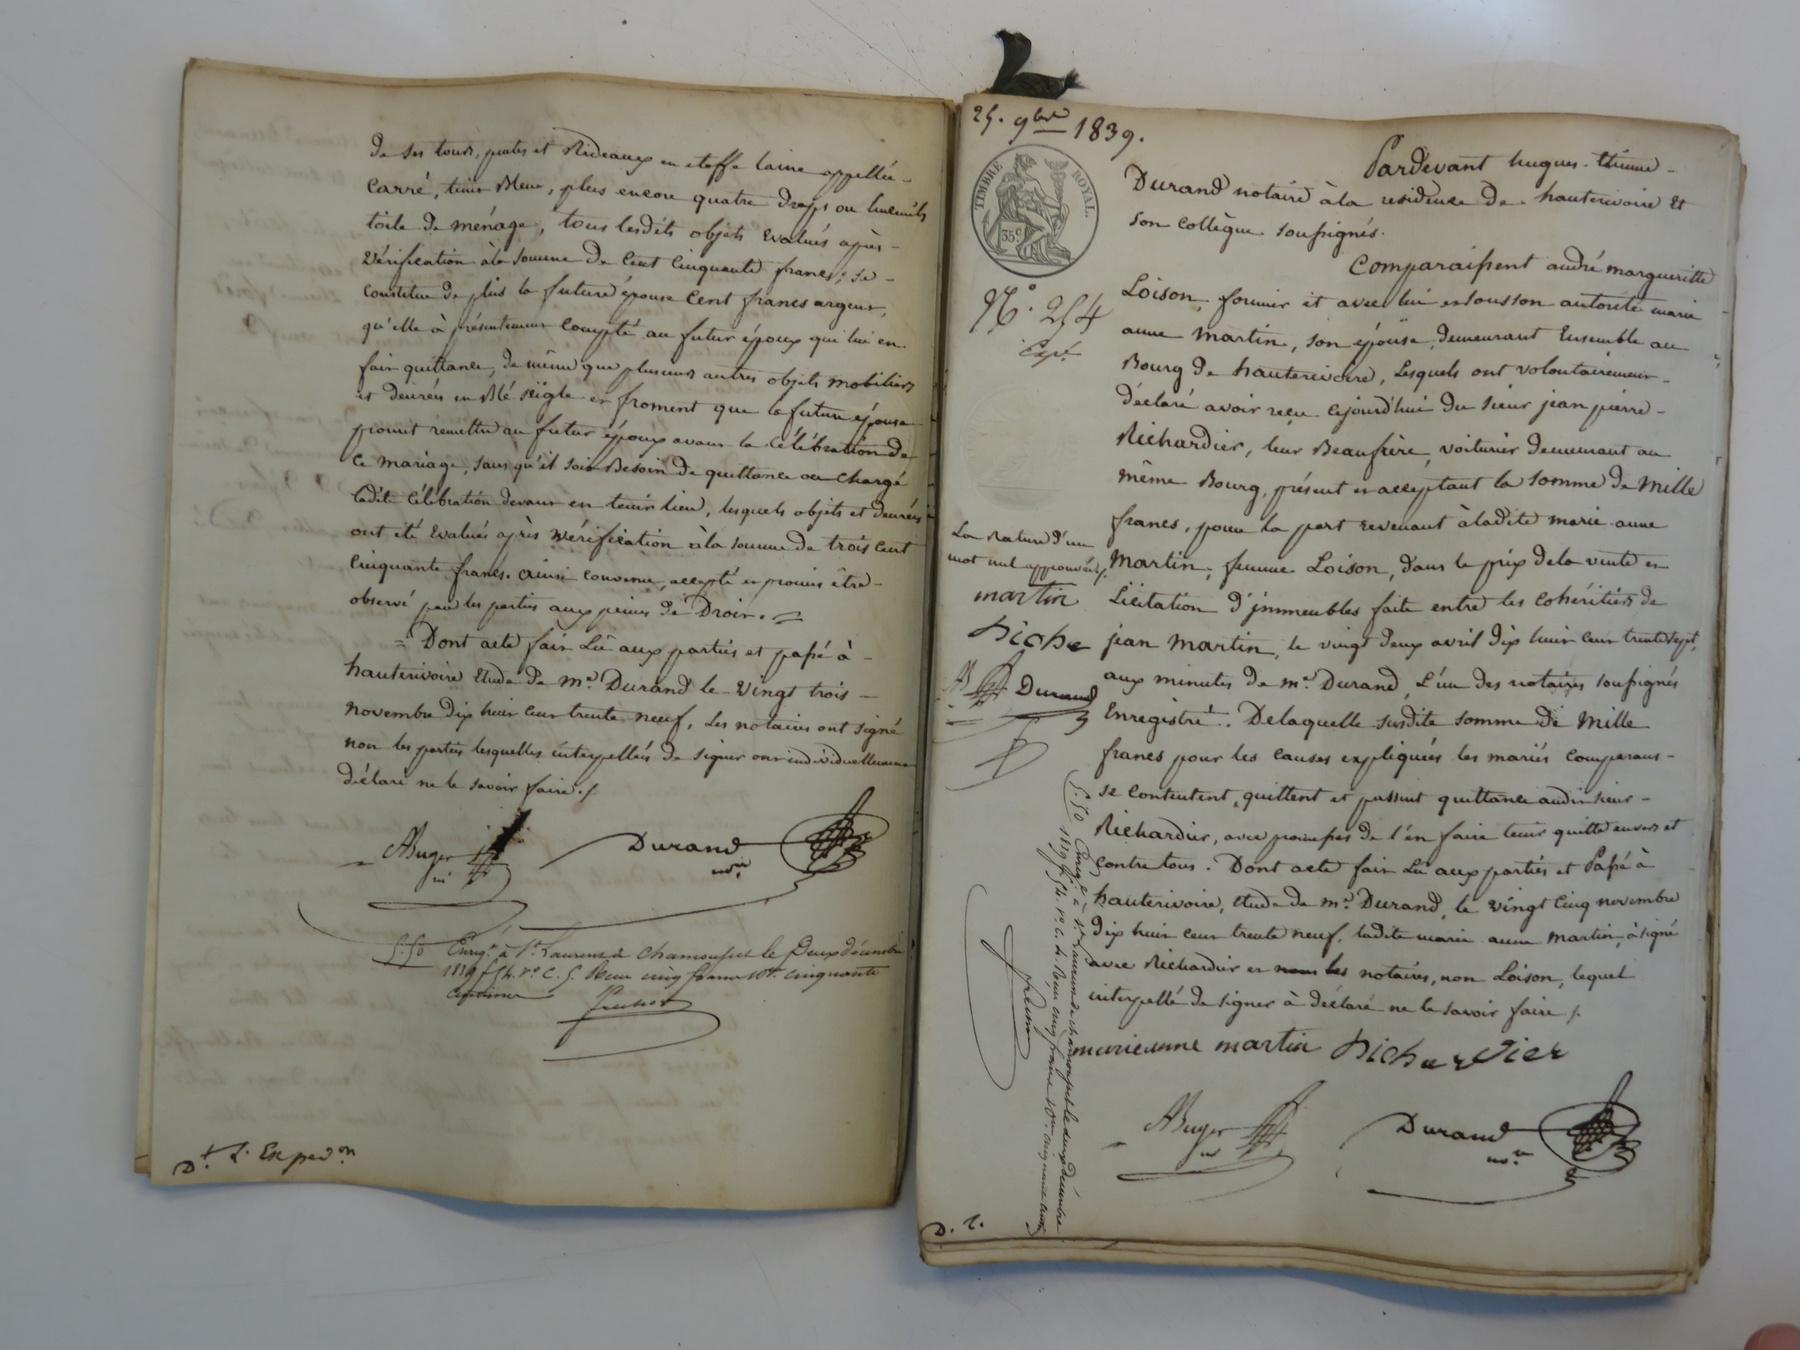 de ses tours, pentes et Rideaux en etoffe laine appellée
Carré, teint Bleue, plus encore quatre draps ou linceuils
toile de ménage, tous lesdits objets Evalués après
Vérification à la somme de Cent Cinquante francs; se
constitue de plus la future épouse Cent francs argent,
qu'elle à présentement compté au futur époux qui lui en
fait quittance, de même que plusieurs autres objets mobiliers
et denrées en Blé seigle et froment que la future épouse
promet remettre au futur époux avant la célébration de
ce mariage, sans qu'il soit Besoin de quittance ou chargé
ladite Célébration devant en tenir lieu, lesquels objets et denrées
ont été Evalués après Vérification à la somme de trois cent
Cinquante francs. ainsi convenu, accepté et promis être
observé par les parties aux peines de Droit.
= Dont acte fait Lû aux parties et passé à
hauterivoire Etude de me. Durand le Vingt trois
novembre dix huit cent trente neuf, Les notaires ont signé
non les parties lesquelles interpellées de signer ont individuellement
déclaré ne le savoir faire ./
ABuger Durand
nre.
5.50 Enrg. à St. Laurent de Chamousset le Deux décembre
1839 f 54. Vo. C. 5. Reçu cinq francs 10me. cinquante
centimes
Dt. L. Expedon
25. 9bre 1839.
TIMBRE ROYAL.
35 c.
No. 254
Expé.
Pardevant hugues-Etienne
Durand notaire à la residence de hauterivoire Et
son collègue soussignés.
Comparaissent andré margueritte
Loison, fournier et avec lui en sousson autorité marie
anne martin, son épouse, demeurant Ensemble au
Bourg de hauterivoire, Lesquels ont volontairement
déclaré avoir reçu cejourd'hui du sieur jean pierre
Richardier, leur Beaufrère, voiturier demeurant au
même Bourg, présent et acceptant la somme de Mille
francs, pour la part revenant à ladite marie anne
martin, femme Loison, dans le prix de la vente et
Licitation d'immeubles faite entre les cohéritiers de
jean martin, le vingt deux avril dix huit cent trente sept,
aux minutes de me. Durand, L'un des notaires soussignés
Enregistré. Delaquelle susdite somme de Mille
francs pour les causes expliquées les mariés comparans
se contentent, quittent et passent quittance audit sieur
Richardier, avec promesses de l'en faire tenir quitte envers et
contre tous. Dont acte fait Lû aux parties et Passé à
hauterivoire, étude de me. Durand, le Vingt Cinq novembre
dix huit cent trente neuf, ladite marie anne martin, à signé
avec Richardier et les notaires, non Loison, lequel
interpellé de signer à déclaré ne le savoir faire ./.
La rature d'un
mot nul approuvée ./.
martin
Riche
AB Durand
marieanne martin Richardier
ABuger Durand
nre.
5.50 Enrgé. à St. Laurent de chamousset le deux décembre
1839 f. 54. Vo. C. 4. Reçu cinq francs 10me. cinquante cent.
D. L.